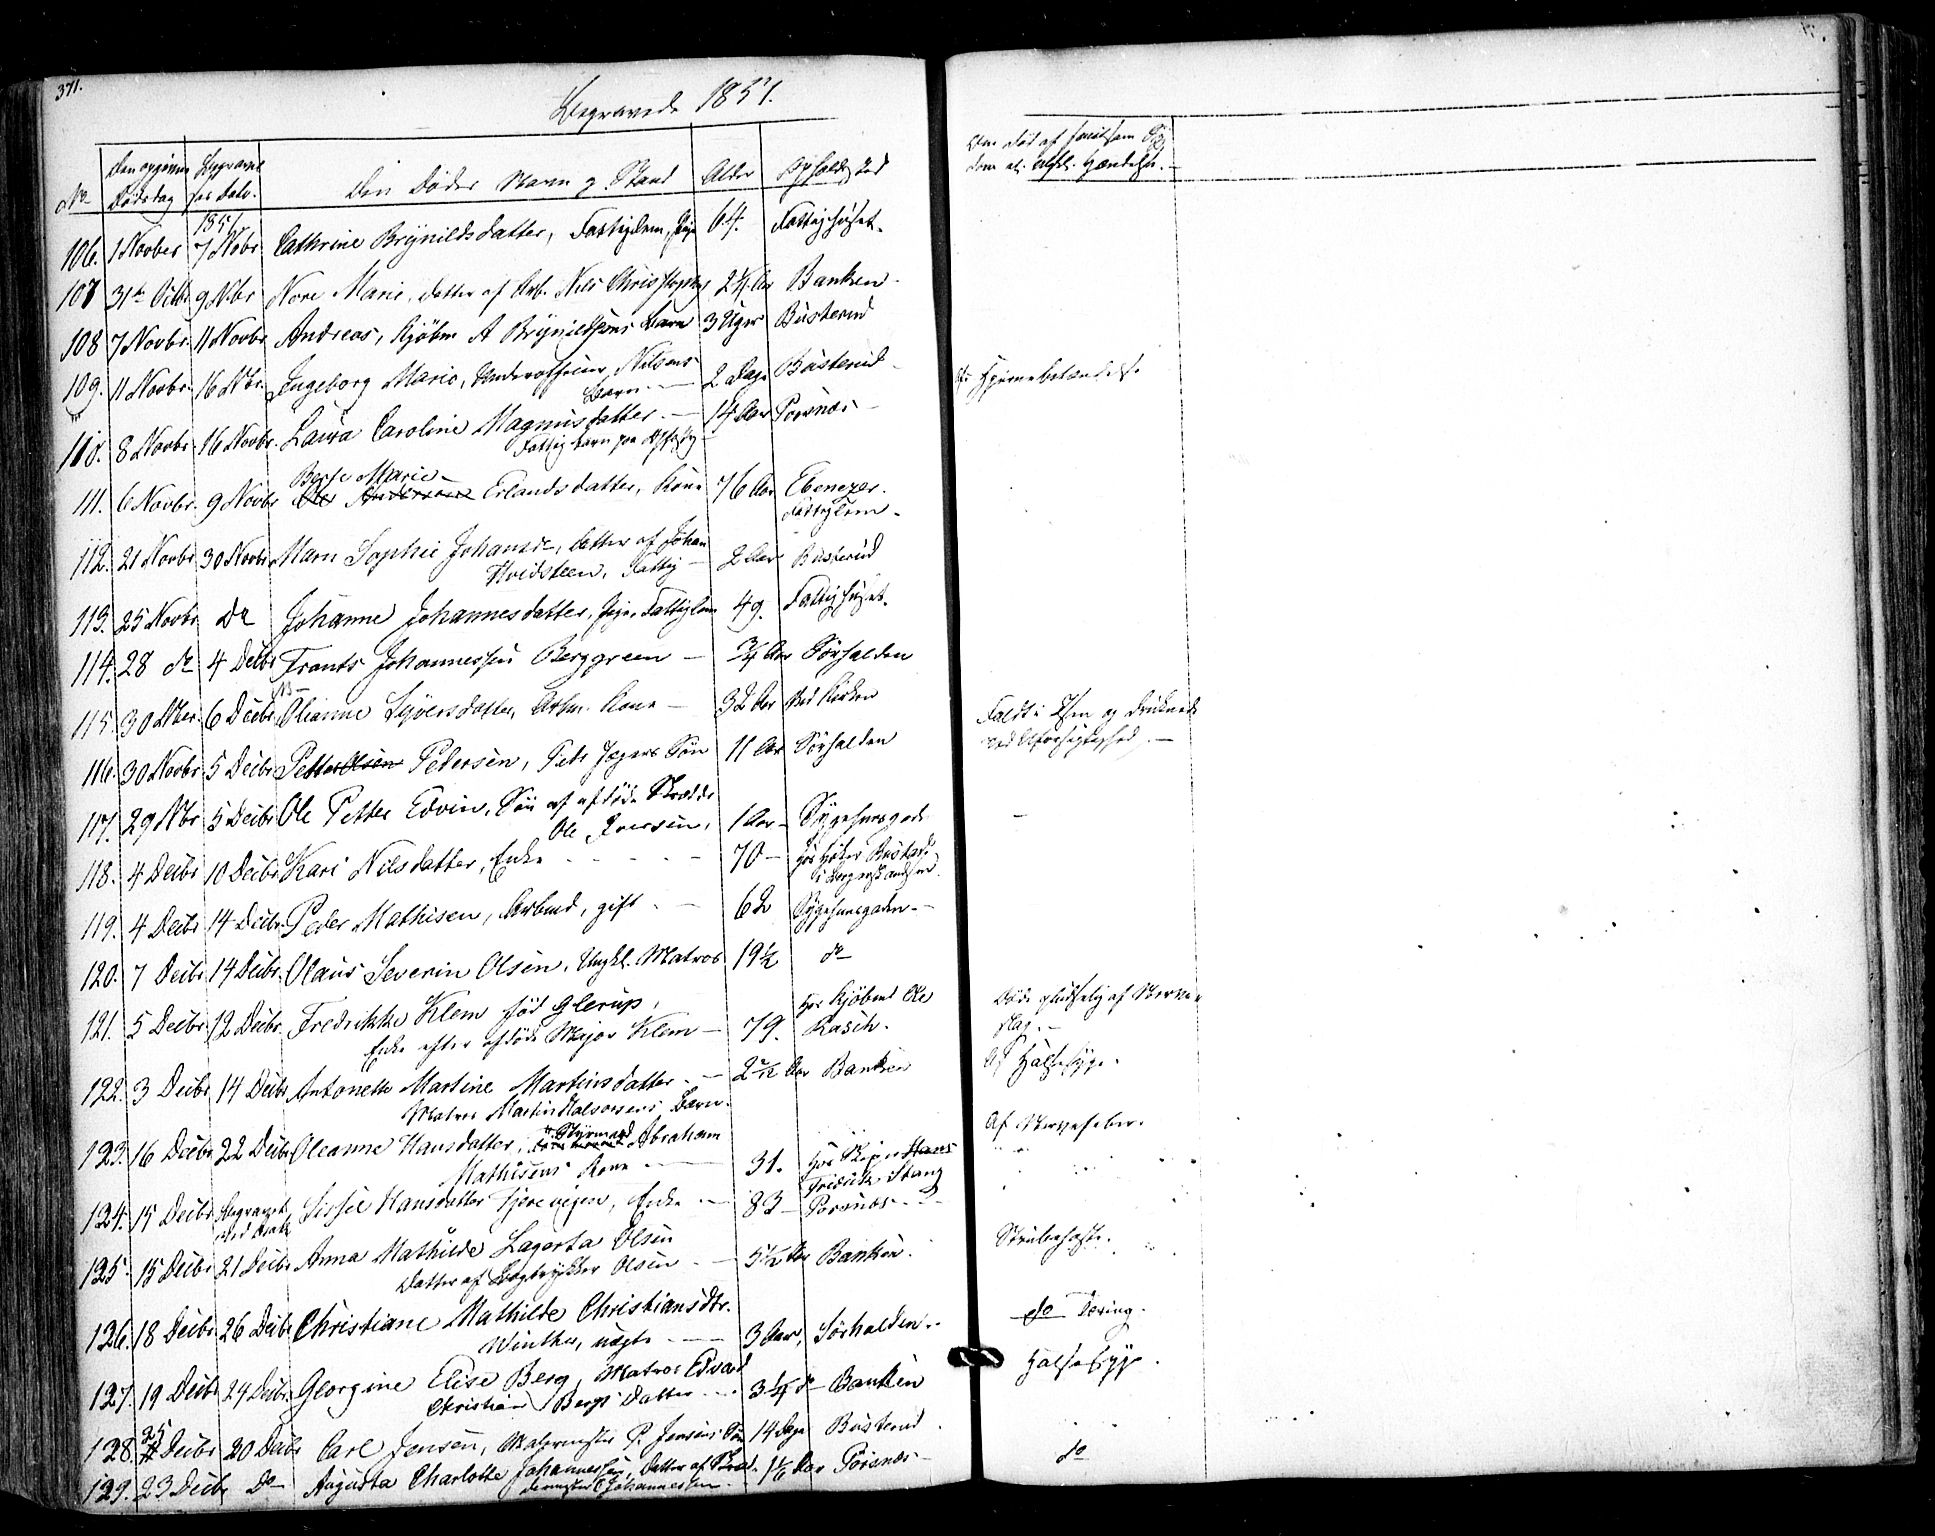 371.
Begravede 1857.
No Den opgivne Dødsdag Begravelses Dato. Den Dødes Navn og Stand Alder Opholdssted Om Død af smitsom Syg
dom el. Hændelse.
106. 1 Novber 7 Nobr Cathrine Brynildsdatter, Fattiglem, Pige 64. Fattighuset.
107 31te Octbr 9 Nbr Nore Marie, datter af Arb. Nils Christophers 2 1/4 Aar Banken
108 7 Novbr. 11 Novbr Andreas, Kjøbm A Brynildsens Barn 3 Uger Busterud
109. 11 Novbr. 16 Nbr. Ingeborg Marie, Nilsens
Barn 2 Dage Busterud Af Hjernebetændelse
110. 8 Novbr. 16 Novbr. Laura Caroline Magnusdatter. 14 Aar Porsnæs
Fattigbarn
Berthe Marie
111. 6 Novbr. 9 Novbr Ole Andersens Erlandsdatter, Kone 76 Aar Ebenezer.
Fattiglem.
112. 21 Novbr 30 Novbr Maren Sophie Johanne, Datter af Johan
Hvidsteen, Fattig 2 Aar Busterud
113. 25 Novbr Do Johanne Johannesdatter, Pige Fattiglem 49. Fattighuset.
114. 28 do 4 Decbr Frants Johannessen Berggreen 3/4 Aar Sørhalden
115. 30 Nber. 6 Decbr. Oleanne Syversdatter, Arbm. Kone 32 Aar Ved Kirken Faldt i Elven og druknede
ved Uforsigtighed.
116. 30 Novbr. 5 Decbr. Petter Olsen Pedersen, Peder Jægers Søn 11 Aar Sørhalden
117. 29 Nbr 5 Decbr. Ole Petter Edvin, Søn af afdøde Skrædder
Ole Iversen, 1 Aar Sygehusgade
118. 4 Decbr 10 Decbr. Kari Nilsdatter, Enke 70 hos
119. 4 Decbr 14 Decbr. Peder Mathisen, Arbmd, gift 62 Sygehusgaden
120. 7 Decbr. 14 Decbr. Olaus Severin Olsen, Ungkl. Matros 19 1/2 do
121. 5 Decbr. 12 Decbr. Fredrikke Klem fød Glerup,
Enke efter afdøde Major Klem 79. Hos Kjøbmd Ole
Rasch. Døde pludselig af Nerve
slag.
122. 3 Decbr 14 Decbr Antonette Martine Martinsdatter. 2 Aar Banken Af Halssyge.
Matros Martin Halvorsens Barn.
123. 16 Decbr. 22 Decbr Oleanne Hansdatter, Styrmand Abraham
Mathisens Kone 31. Hos Skipr Hans
Fredrik Stang Af Nervefeber.
124. 15 Decbr. Begravet Sissel Hansdatter Tjerevejen, Enke 83 Porsnæs
125. 15 Decbr 21 Decbr Anna Mathilde Lagerta Olsen
Datter af Bogtrykker Olsen 5 1/2 Aar Banken. Strubehoste.
126. 18 Decbr. 26 Decbr Christiane Mathilde Christiansdtr.
Winther, uægte 3 Aar, Sørhalden. do Tæring.
127. 19 Decbr. 24 Decbr. Georgine Elise Berg, Matros Edvard
Christian Bergs Datter 3 1/4 do Banken Halssyge.
128. 25 Decbr 20 Decbr Carl Jensen, Malermester P. Jensens Søn 14 Dage Busterud
129. 23 Decbr Do Augusta Charlotte Johannessen, Datter af Skræd.
dermester C Johannessen. 1 1/6 Aar Porsnæs do